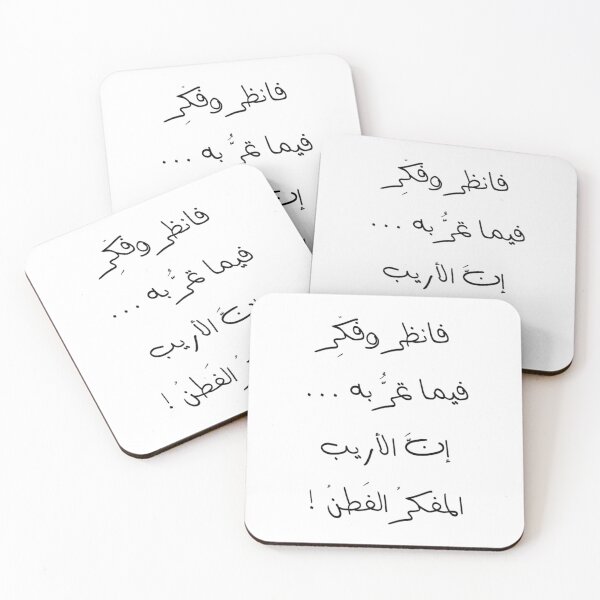 فانظر وفكِّر
فيما تمرُّ به ...
فانظر وفكِّر
فيما تمرُّ به ...
إنَّ الأريب
فانظر وفكِّر
فيما تمرُّ به ...
الأريب
الفَطنُ !
فانظر وفكِّر
فيما تمرُّ به ...
إنَّ الأريب
المفكرُ الفَطنُ !